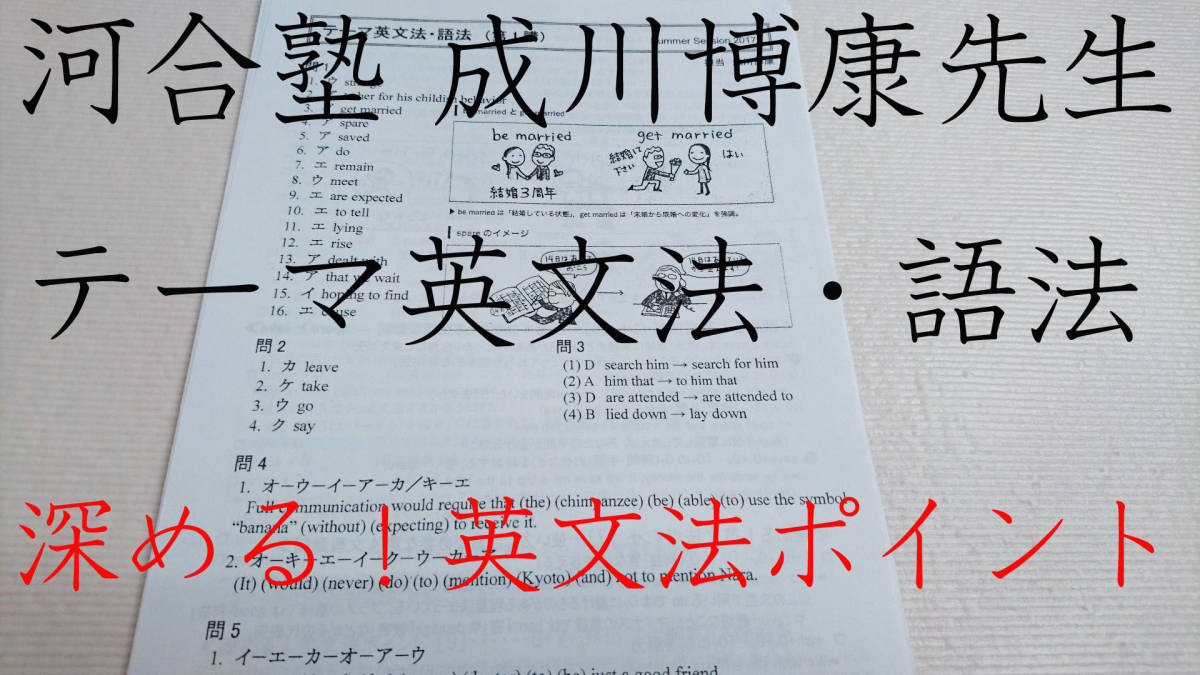 河合塾 成川博康先生
テーマ英文法・語法
深める!英文法ポイント
テーマ英文法・語法 (第1講)
Summer Session 2017
担当
問1
1. ウ
2. for his childish behavior
3. ア get married
4. ア spare
5. ア saved
6. ア do
7. エ remain
8. ウ meet
9. エ are expected
10. エ to tell
11. エ lying
12. エ rise
13. ア dealt with
14. ア that we wait
15. イ hoping to find
16. エ cause
be married get married
結婚して下さい
はい
結婚3周年
▶ be married は「結婚している状態」, get married は「未婚から既婚への変化」を強調。
spare のイメージ
問2
1. カ leave
2. ケ take
3. ウ go
4. ク say
問3
(1) D search him → search for him
(2) A him that → to him that
(3) D are attended → are attended to
(4) B lied down → lay down
問4
1. オーウーイーアーカ/キーエ
Full communication would require that (the) (chimpanzee) (be) (able) (to) use the symbol
“banana” (without) (expecting) to receive it.
2. オーキーエーイークーウーカーア
(It) (would) (never) (do) (to) (mention) (Kyoto) (and) not to mention Nara.
問5
1. イーエーカーオーアーウ
(to) (be) just a good friend.